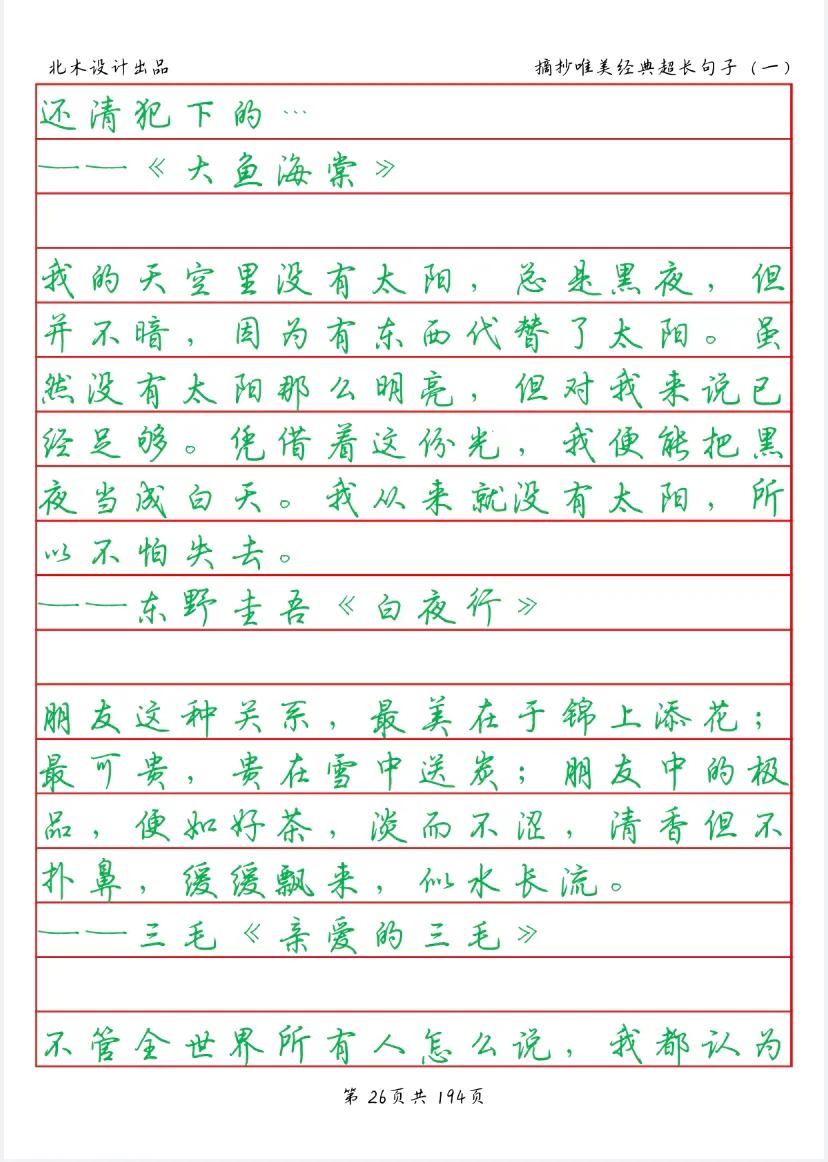 北木设计出品
摘抄唯美经典超长句子（一）
还清犯下的…
——《大鱼海棠》
我的天空里没有太阳，总是黑夜，但
并不暗，因为有东西代替了太阳。虽
然没有太阳那么明亮，但对我来说已
经足够。凭借着这份光，我便能把黑
夜当成白天。我从来就没有太阳，所
以不怕失去。
——东野圭吾《白夜行》
朋友这种关系，最美在于锦上添花；
最可贵，贵在雪中送炭；朋友中的极
品，便如好茶，淡而不涩，清香但不
扑鼻，缓缓飘来，似水长流。
——三毛《亲爱的三毛》
不管全世界所有人怎么说，我都认为
第 26页共 194页